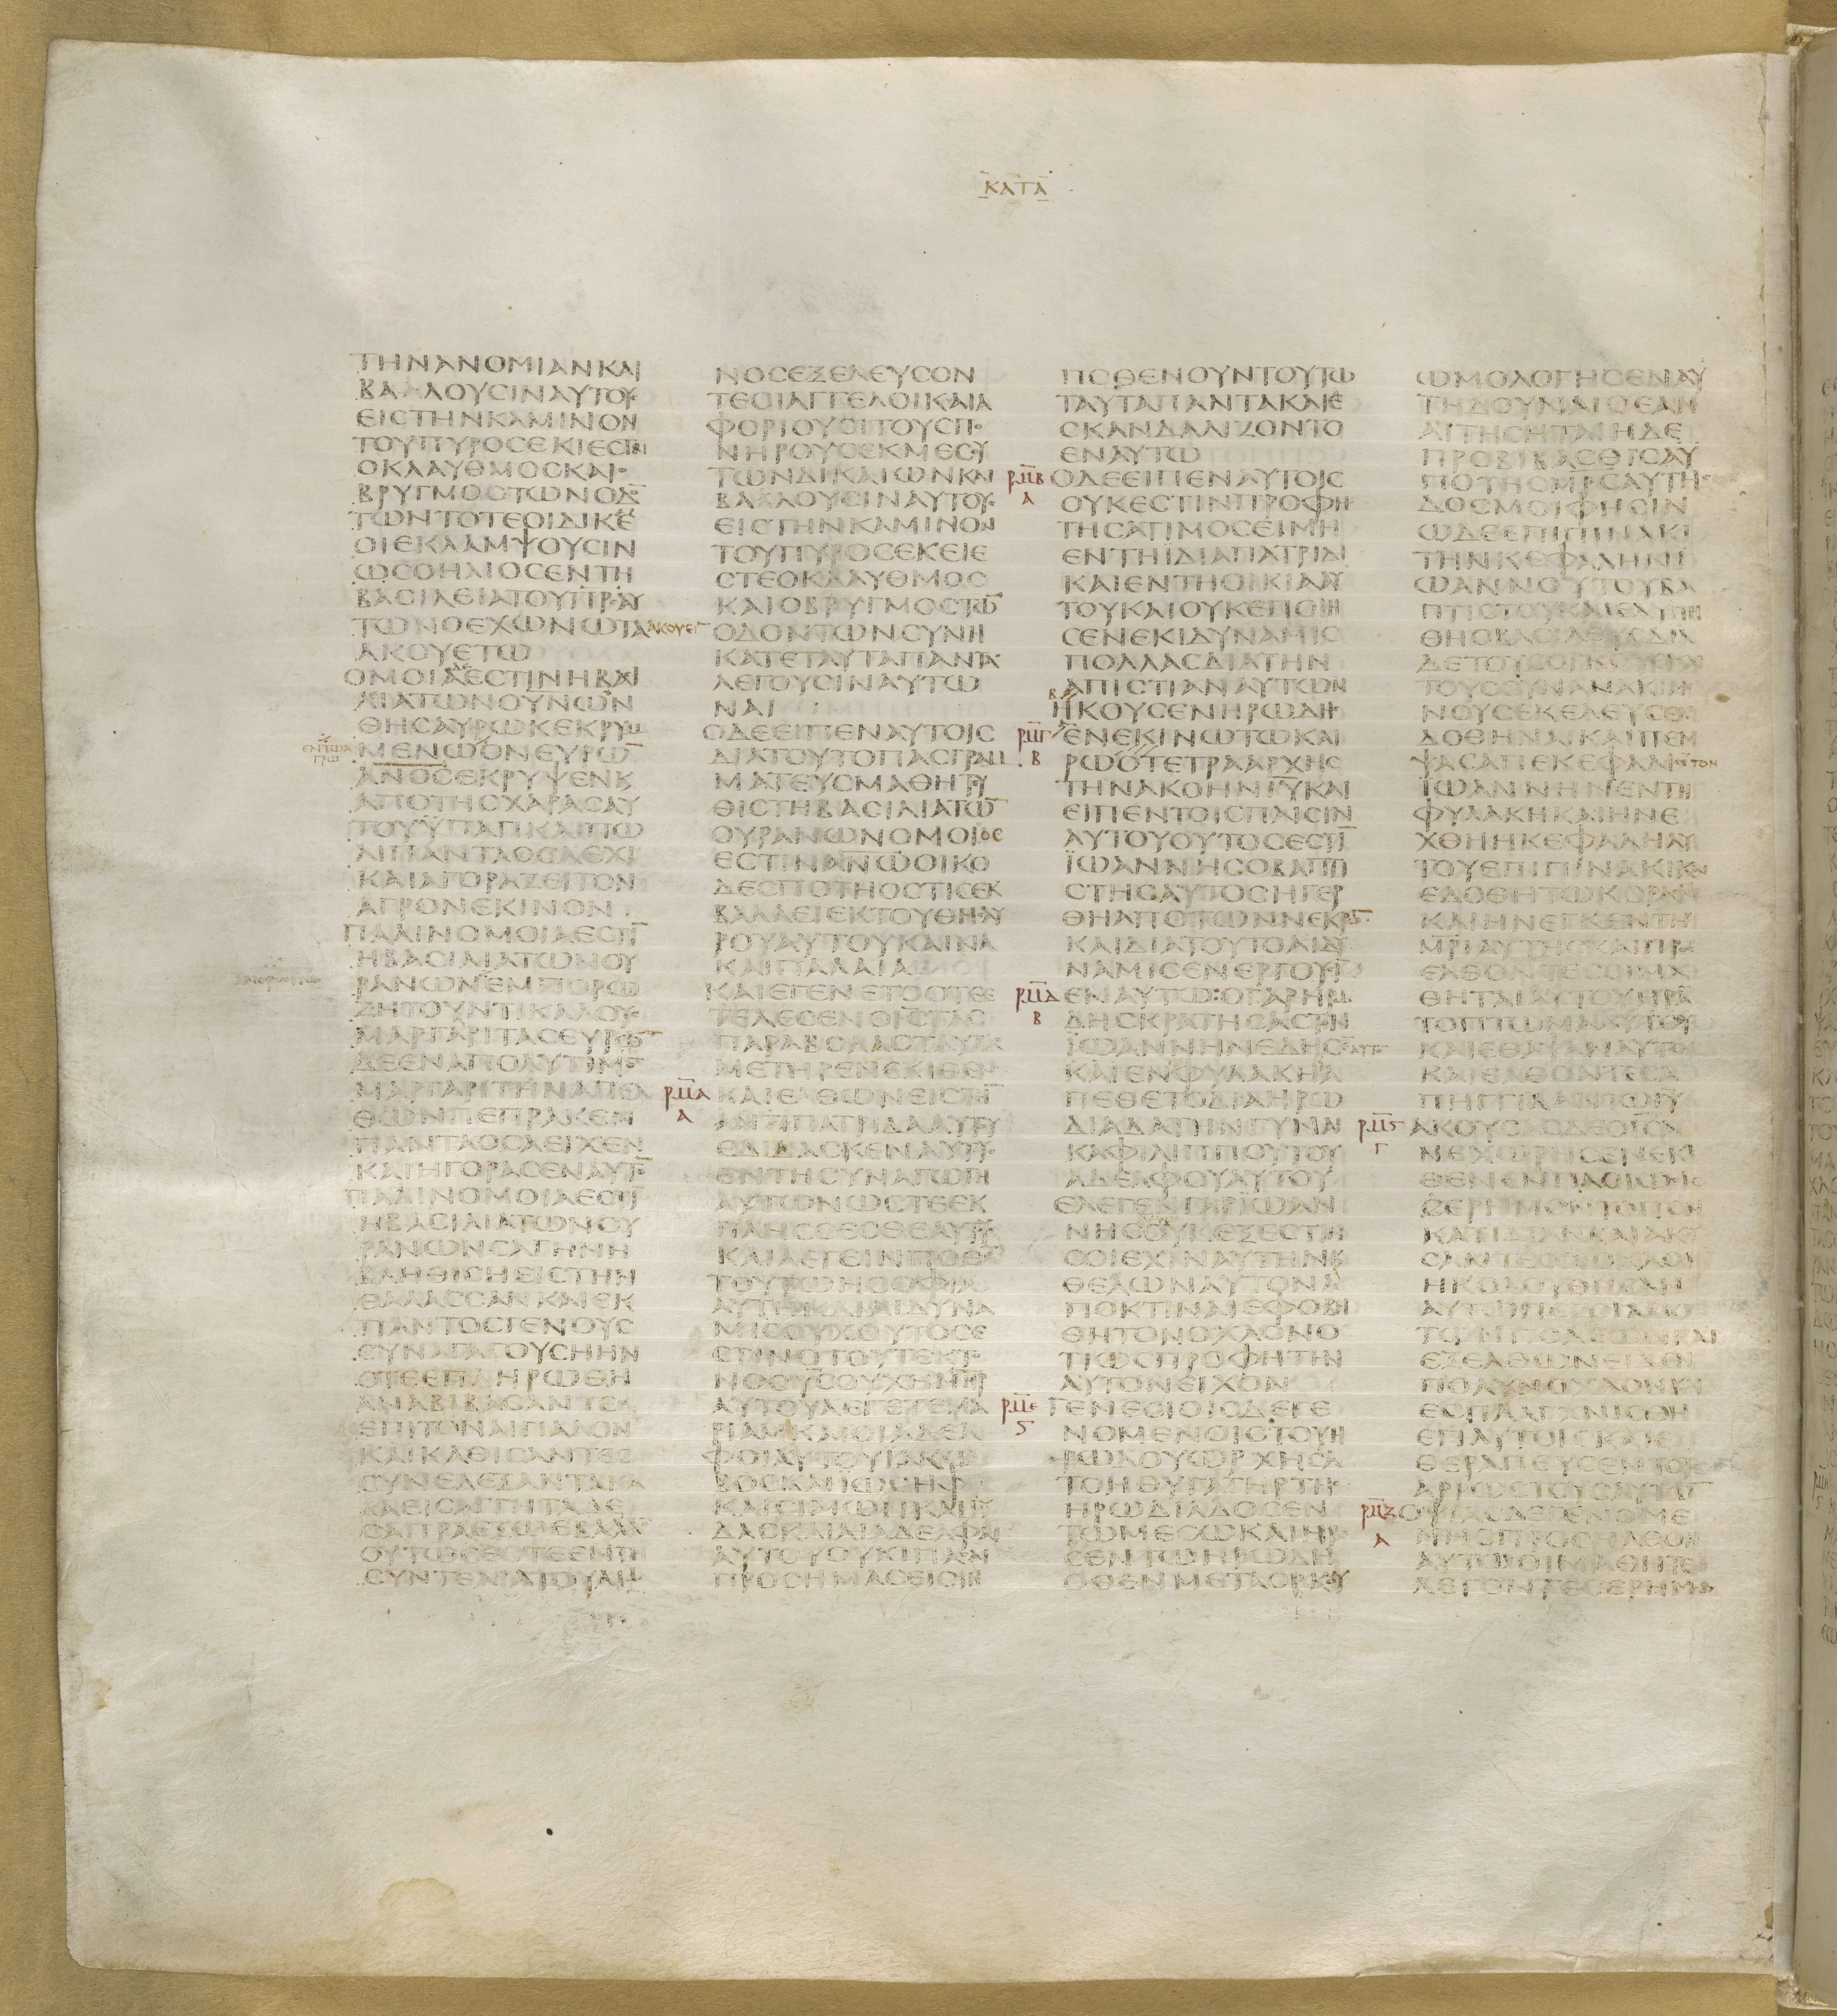 ΚΑΤΑ
ΤΗΝΑΝΟΜΙΑΝΚΑΙ
ΒΑΛΛΟΥϹΙΝΑΥΤΟΥϹ
ΕΙϹΤΗΝΚΑΜΙΝΟΝ
ΤΟΥΠΥΡΟϹΕΚΙΕϹΤΑΙ
ΟΚΛΑΥΘΜΟϹΚΑΙΟ
ΒΡΥΓΜΟϹΤΩΝΟΔΟ̅
ΤΩΝΤΟΤΕΟΙΔΙΚΕ
ΟΙΕΚΛΑΜΨΟΥϹΙΝ
ΩϹΟΗΛΙΟϹΕΝΤΗ
ΒΑϹΙΛΕΙΑΤΟΥΠΡ̅ϹΑΥ
ΤΩΝΟΕΧΩΝΩΤΑΑΚΟΥΕΙ̅
ΑΚΟΥΕΤΩ
ΟΜΟΙΑΕϹΤΙΝΗΒΑϹΙ
ΛΙΑΤΩΝΟΥΝΩ̅Ν
ΘΗϹΑΥΡΩΚΕΚΡΥΜ
ΕΝΤΩΑ
ΓΡΩ
ΜΕΝΩΟΝΕΥΡΩ̅
ΑΝΟ̅ϹΕΚΡΥΨΕΝΚϗ
ΑΠΟΤΗϹΧΑΡΑϹΑΥ
ΤΟΥΫΠΑΓΙΚΑΙΠΩ
ΛΙΠΑΝΤΑΟϹΑΕΧΙ
ΚΑΙΑΓΟΡΑΖΕΙΤΟΝ
ΑΓΡΟΝΕΚΙΝΟΝ
ΠΑΛΙΝΟΜΟΙΑΕϹΤΙ̅
ΗΒΑϹΙΛΙΑΤΩΝΟΥ
ΡΑΝΩΝΕΜΠΟΡΩ
ΖΗΤΟΥΝΤΙΚΑΛΟΥϹ
ΜΑΡΓΑΡΙΤΑϹΕΥΡΩ̅
ΔΕΕΝΑΠΟΛΥΤΙΜΟ̅
ΜΑΡΓΑΡΙΤΗΝΑΠΕΛ
ΘΩΝΠΕΠΡΑΚΕΝ
ΠΑΝΤΑΟϹΑΕΙΧΕΝ
ΚΑΙΗΓΟΡΑϹΕΝΑΥΤΟ̅
ΠΑΛΙΝΟΜΟΙΑΕϹΤΙ̅
ΗΒΑϹΙΛΙΑΤΩΝΟΥ
ΡΑΝΩΝϹΑΓΗΝΗ
ΒΛΗΘΙϹΗΕΙϹΤΗΝ
ΘΑΛΑϹϹΑΝΚΑΙΕΚ
ΠΑΝΤΟϹΓΕΝΟΥϹ
ϹΥΝΑΓΑΓΟΥϹΗΗΝ
ΟΤΕΕΠΛΗΡΩΘΗ
ΑΝΑΒΙΒΑϹΑΝΤΕϹ
ΕΠΙΤΟΝΑΙΓΙΑΛΟΝ
ΚΑΙΚΑΘΙϹΑΝΤΕϹ
ϹΥΝΕΛΕΞΑΝΤΑΚΑ
ϹΑΠΡΑΕΞΩΕΒΑΛΟ̅
ΟΥΤΩϹΕϹΤΕΕΝΤΗ
ϹΥΝΤΕΛΙΑΤΟΥΑΙΩ
ΝΟϹΕΞΕΛΕΥϹΟΝ
ΤΕΟΙΑΓΓΕΛΟΙΚΑΙΑ
ΦΟΡΙΟΥϹΙΤΟΥϹΠΟ
ΝΗΡΟΥϹΕΚΜΕϹΟΥ
ΤΩΝΔΙΚΑΙΩΝΚΑΙ
ΒΑΛΛΟΥϹΙΝΑΥΤΟΥϹ
ΕΙϹΤΗΝΚΑΜΙΝΟΝ
ΤΟΥΠΥΡΟϹΕΚΕΙΕ
ϹΤΕΟΚΛΑΥΘΜΟϹ
ΚΑΙΟΒΡΥΓΜΟϹΤΩ̅
ΟΔΟΝΤΩΝϹΥΝΗ
ΚΑΤΕΤΑΥΤΑΠΑΝΤΑ
ΛΕΓΟΥϹΙΝΑΥΤΩ
ΝΑΙ
ΟΔΕΕΙΠΕΝΑΥΤΟΙϹ
ΔΙΑΤΟΥΤΟΠΑϹΓΡΑΜ
ΜΑΤΕΥϹΜΑΘΗΤΕΥ
ΘΙϹΤΗΒΑϹΙΛΙΑΤΩ̅
ΟΥΡΑΝΩΝΟΜΟΙΟϹ
ΕϹΤΙΝΑΝΩ̅ΟΙΚΟ
ΔΕϹΠΟΤΗΟϹΤΙϹΕΚ
ΒΑΛΛΕΙΕΚΤΟΥΘΗϹΑΥ
ΡΟΥΑΥΤΟΥΚΑΙΝΑ
ΚΑΙΠΑΛΑΙΑ
ΚΑΙΕΓΕΝΕΤΟΟΤΕΕ
ΤΕΛΕϹΕΝΟΙϹΤΑϹ
ΠΑΡΑΒΟΛΑϹΤΑΥΤΑϹ
ΜΕΤΗΡΕΝΕΚΙΘΕΝ
ΡΜΑ
Α
ΚΑΙΕΛΘΩΝΕΙϹΤΗ̅
ΑΝΤΙΠΑΤΡΙΔΑΑΥΤΟΥ
ΕΔΙΔΑϹΚΕΝΑΥΤΟΥϹ
ΕΝΤΗϹΥΝΑΓΩΓΗ
ΑΥΤΩΝΩϹΤΕΕΚ
ΠΛΗϹϹΕϹΘΕΑΥΤΟΥϹ
ΚΑΙΛΕΓΕΙΝΠΟΘΕ̅
ΤΟΥΤΩΗϹΟΦΙΑ
ΑΥΤΗΚΑΙΑΙΔΥΝΑ
ΜΙϹΟΥΧΟΥΤΟϹΕ
ϹΤΙΝΟΤΟΥΤΕΚΤΟ
ΝΟϹΥϹΟΥΧΗΜΗΡ
ΑΥΤΟΥΛΕΓΕΤΕΜΑ
ΡΙΑΜΚΑΙΟΙΑΔΕΛ
ΦΟΙΑΥΤΟΥΙΑΚΩ
ΒΟϹΚΑΙΙΩϹΗΦ
ΚΑΙϹΙΜΩΝΚΑΙΙΟΥ
ΔΑϹΚΑΙΑΙΑΔΕΛΦΑΙ
ΑΥΤΟΥΟΥΚΙΠΑϹΑΙ
ΠΡΟϹΗΜΑϹΕΙϹΙΝ
ΠΟΘΕΝΟΥΝΤΟΥΤΩ
ΤΑΥΤΑΠΑΝΤΑΚΑΙΕ
ϹΚΑΝΔΑΛΙΖΟΝΤΟ
ΕΝΑΥΤΩ
ΡΜΒ
Α
ΟΔΕΕΙΠΕΝΑΥΤΟΙϹ
ΟΥΚΕϹΤΙΝΠΡΟΦΗ
ΤΗϹΑΤΙΜΟϹΕΙΜΗ
ΕΝΤΗΪΔΙΑΠΑΤΡΙΔΙ
ΚΑΙΕΝΤΗΟΙΚΙΑΑΥ
ΤΟΥΚΑΙΟΥΚΕΠΟΙΗ
ϹΕΝΕΚΙΔΥΝΑΜΙϹ
ΠΟΛΛΑϹΔΙΑΤΗΝ
ΑΠΙϹΤΙΑΝΑΥΤΩΝ
ΗΚΟΥϹΕΝΗΡΩΔΗϹ
ΡΜΓ
Β
ΕΝΕΚΙΝΩΤΩΚΑΙ
ΡΩΟΤΕΤΡΑΑΡΧΗϹ
ΤΗΝΑΚΟΗΝΙΥ̅ΚΑΙ
ΕΙΠΕΝΤΟΙϹΠΑΙϹΙΝ
ΑΥΤΟΥΟΥΤΟϹΕϹΤΙ̅
ΪΩΑΝΝΗϹΟΒΑΠΤΙ
ϹΤΗϹΑΥΤΟϹΗΓΕΡ
ΘΗΑΠΟΤΩΝΝΕΚΡΩ̅
ΚΑΙΔΙΑΤΟΥΤΟΑΙΔΥ
ΝΑΜΙϹΕΝΕΡΓΟΥϹΙ̅
ΡΜΔ
Β
ΕΝΑΥΤΩ:ΟΓΑΡΗΡΩ
ΔΗϹΚΡΑΤΗϹΑϹΤΟΝ
ΪΩΑΝΝΗΝΕΔΗϹΕ̅ΑΥΤΟ̅
ΚΑΙΕΝΦΥΛΑΚΗΑ
ΠΕΘΕΤΟΔΙΑΗΡΩ
ΔΙΑΔΑΤΗΝΓΥΝΑΙ
ΚΑΦΙΛΙΠΠΟΥΤΟΥ
ΑΔΕΛΦΟΥΑΥΤΟΥ
ΕΛΕΓΕΝΓΑΡΪΩΑΝ
ΝΗϹΟΥΚΕΞΕϹΤΙΝ
ϹΟΙΕΧΙΝΑΥΤΗΝΚϗ
ΘΕΛΩΝΑΥΤΟΝΑ
ΠΟΚΤΙΝΑΙΕΦΟΒΗ
ΘΗΤΟΝΟΧΛΟΝΟ
ΤΙΩϹΠΡΟΦΗΤΗΝ
ΑΥΤΟΝΕΙΧΟΝ
ΡΜΕ
Ϛ
ΓΕΝΕϹΙΟΙϹΔΕΓΕ
ΝΟΜΕΝΟΙϹΤΟΥΗ
ΡΩΔΟΥΩΡΧΗϹΑ
ΤΟΗΘΥΓΑΤΗΡΤΗϹ
ΗΡΩΔΙΑΔΟϹΕΝ
ΤΩΜΕϹΩΚΑΙΗΡΕ
ϹΕΝΤΩΗΡΩΔΗ
ΟΘΕΝΜΕΤΑΟΡΚΟΥ
ΩΜΟΛΟΓΗϹΕΝΑΥ
ΤΗΔΟΥΝΑΙΟΕΑΝ
ΑΙΤΗϹΗΤΑΙΗΔΕ
ΠΡΟΒΙΒΑϹΘΙϹΑΥ
ΠΟΤΗϹΜΡ̅ϹΑΥΤΗϹ
ΔΟϹΜΟΙΦΗϹΙΝ
ΩΔΕΕΠΙΠΙΝΑΚΙ
ΤΗΝΚΕΦΑΛΗΝΪ
ΩΑΝΝΟΥΤΟΥΒΑ
ΠΤΙϹΤΟΥΚΑΙΕΛΥΠΗ
ΘΗΟΒΑϹΙΛΕΥϹΔΙΑ
ΔΕΤΟΥϹΟΡΚΟΥϹΚΑΙ
ΤΟΥϹϹΥΝΑΝΑΚΙΜΕ
ΝΟΥϹΕΚΕΛΕΥϹΕ̅
ΔΟΘΗΝΑΙΚΑΙΠΕΜ
ΨΑϹΑΠΕΚΕΦΑΛΙϹΕΤΟΝ
ΪΩΑΝΝΗΝΕΝΤΗ
ΦΥΛΑΚΗΚΑΙΗΝΕ
ΧΘΗΗΚΕΦΑΛΗΑΥ
ΤΟΥΕΠΙΠΙΝΑΚΙΚΑΙ
ΕΔΟΘΗΤΩΚΟΡΑϹΙΩ
ΚΑΙΗΝΕΓΚΕΝΤΗ
ΜΡ̅ΙΑΥΤΗϹΚΑΙΠΡΟϹ
ΕΛΘΟΝΤΕϹΟΙΜΑ
ΘΗΤΑΙΑΥΤΟΥΗΡΑ̅
ΤΟΠΤΩΜΑΑΥΤΟΥ
ΚΑΙΕΘΑΨΑΝΑΥΤΟ̅
ΚΑΙΕΛΘΟΝΤΕϹΑ
ΠΗΓΓΙΛΑΝΤΩΙΥ̅
ΡΜϚ
Γ
ΑΚΟΥϹΑϹΔΕΟΙϹ̅Α
ΝΕΧΩΡΗϹΕΝΕΚΙ
ΘΕΝΕΝΠΛΟΙΩΕΙϹ
ΕΡΗΜΟΝΤΟΠΟΝ
ΚΑΤΙΔΙΑΝΚΑΙΑΚΟΥ
ϹΑΝΤΕϹΟΙΟΧΛΟΙ
ΗΚΟΛΟΥΘΗϹΑΝ
ΑΥΤΩΠΕΖΟΙΑΠΟ
ΤΩΜΠΟΛΕΩΝΚΑΙ
ΕΞΕΛΘΩΝΕΙΔΕ
ΠΟΛΥΝΟΧΛΟΝΚΑΙ
ΕϹΠΛΑΓΧΝΙϹΘΗ
ΕΠΑΥΤΟΙϹΚΑΙΕ
ΘΕΡΑΠΕΥϹΕΝΤΟΥϹ
ΑΡΡΩϹΤΟΥϹΑΥΤΩ̅
ΡΜΖ
Α
ΟΨΙΑϹΔΕΓΕΝΟΜΕ
ΝΗϹΠΡΟϹΗΛΘΟΝ
ΑΥΤΩΟΙΜΑΘΗΤΑΙ
ΛΕΓΟΝΤΕϹΕΡΗΜΟϹ